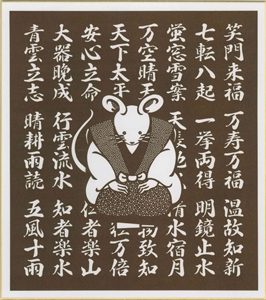 笑門来福 万寿万福 温故知新
七転八起 一挙両得 明鏡止水
蛍窓雪案 天長 清水宿月
万空晴天 物致知
天下太平 万倍
安心立命 仁者楽山
大器晩成 行雲流水 知者楽水
青雲立志 晴耕雨読 五風十雨